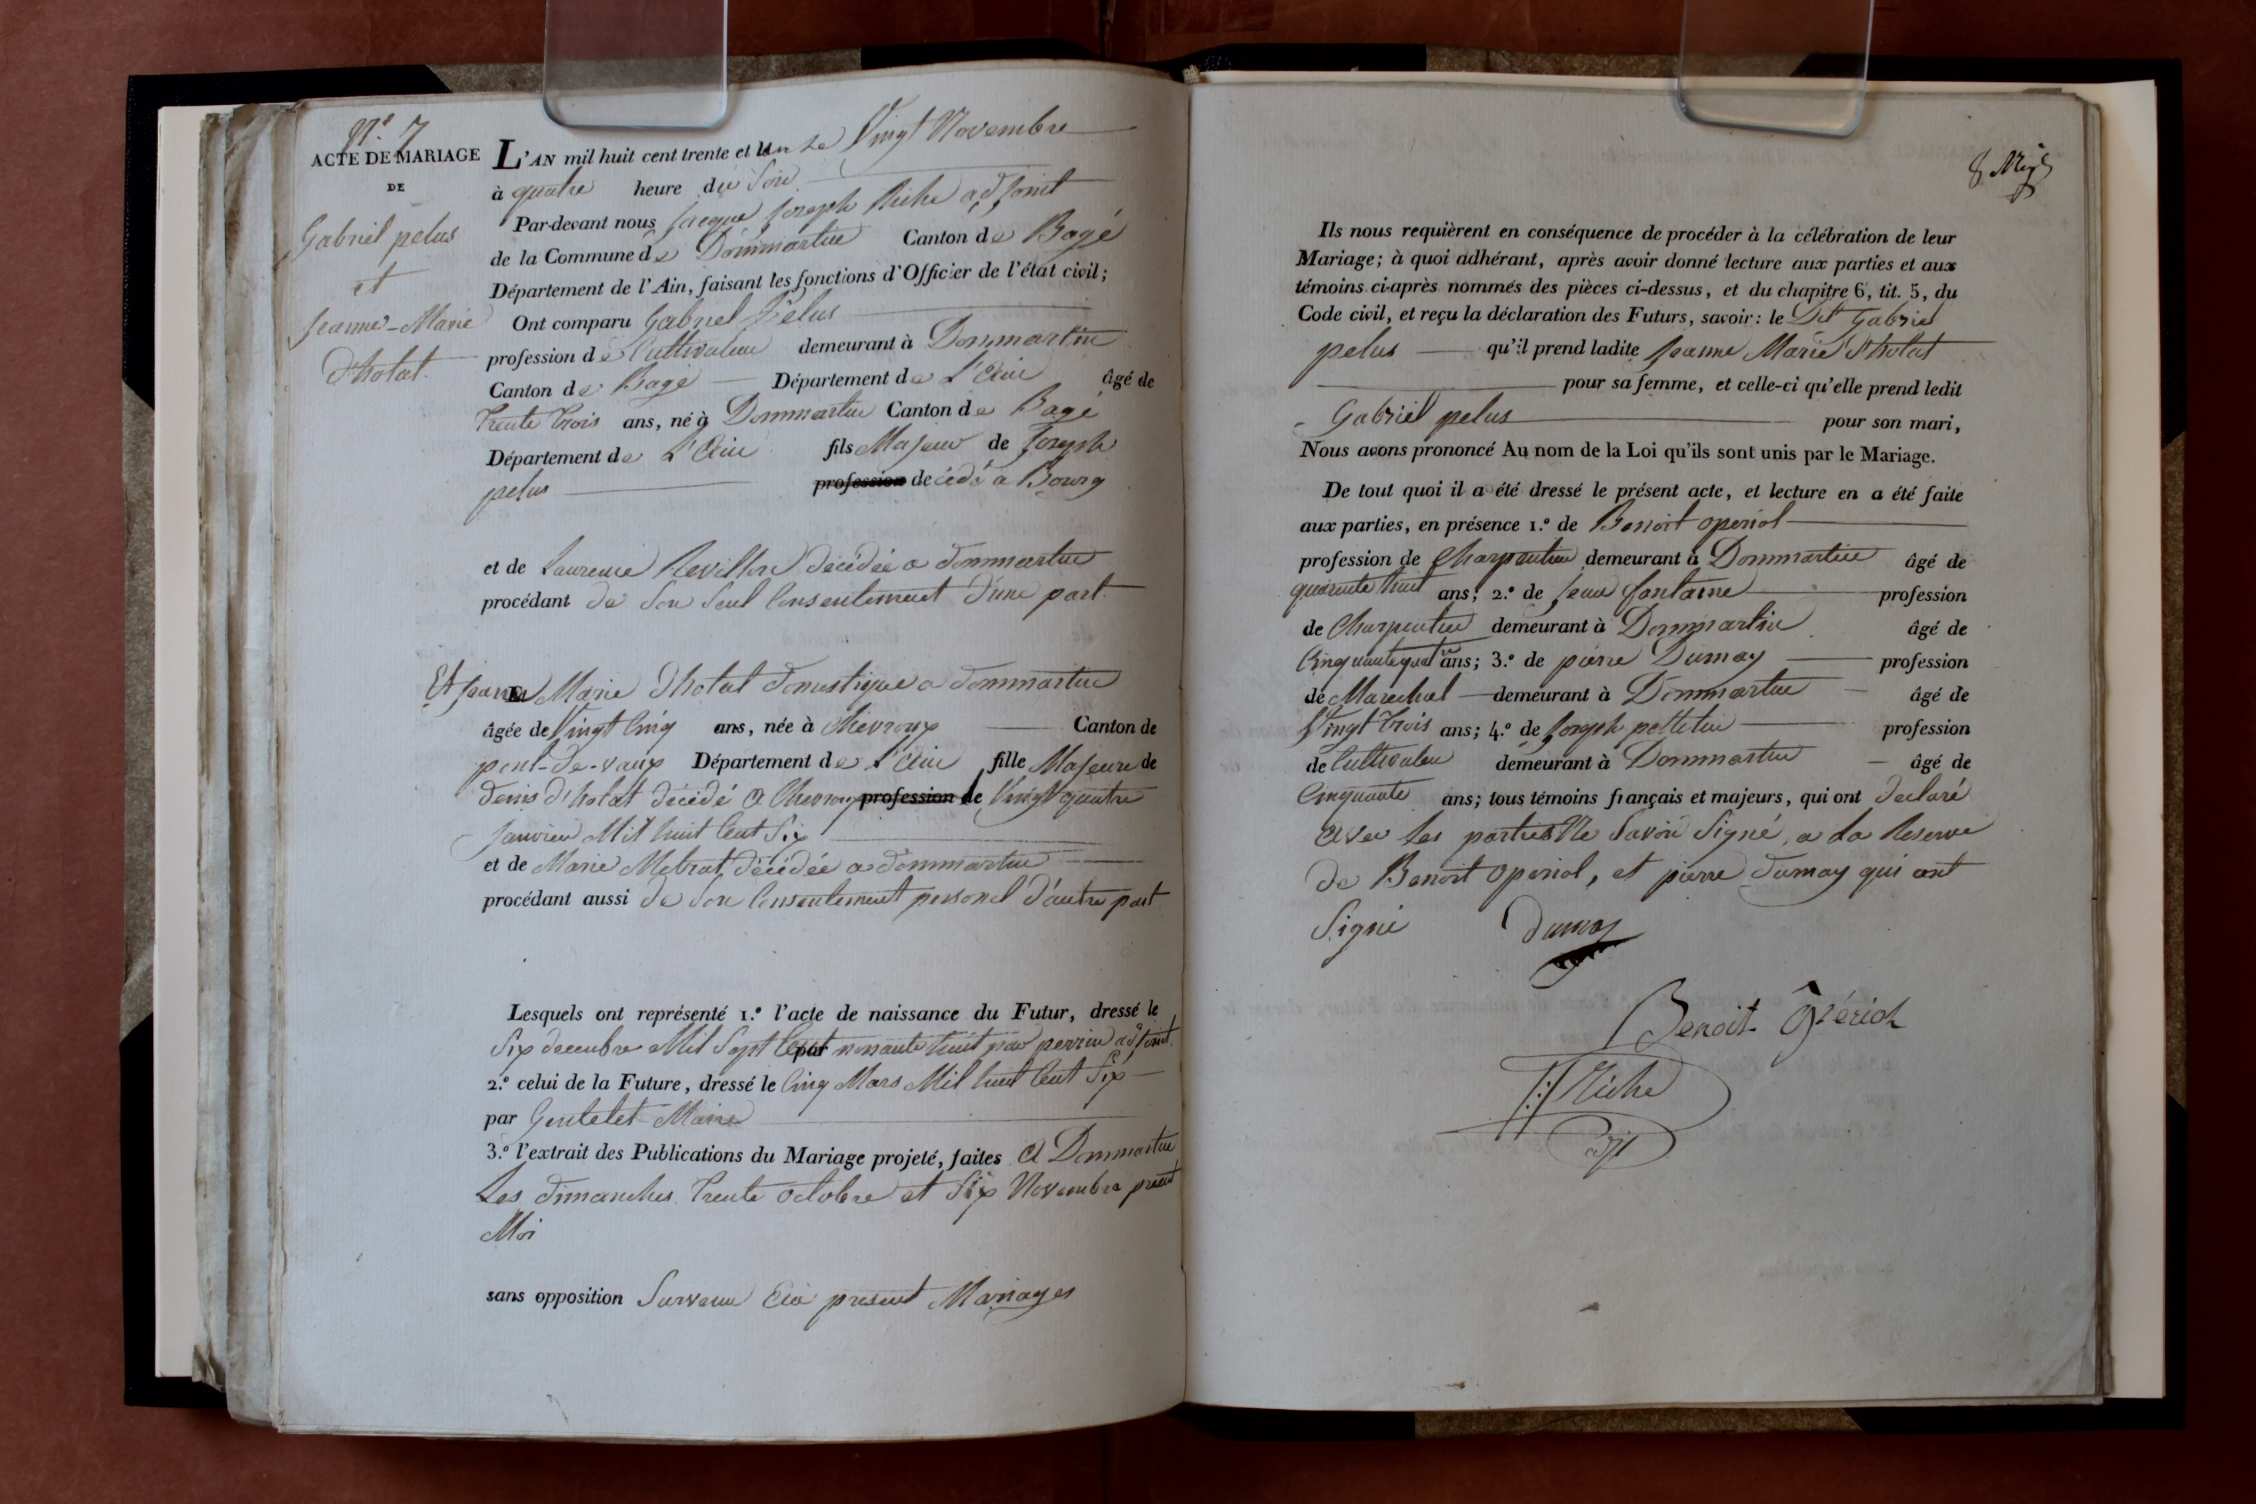 N.º 7
ACTE DE MARIAGE
DE
Gabriel pelus
et
Jeanne-Marie
d'hotat
L'AN mil huit cent trente et un Le Vingt Novembre
à quatre heure du Soir
Par-devant nous Jacque Joseph Riche adjoint
de la Commune de Dommartin Canton de Bagé
Département de l'Ain, faisant les fonctions d'Officier de l'état civil;
Ont comparu Gabriel Pelus
profession de Cultivateur demeurant à Dommartin
Canton de Bagé Département de L'Ain âgé de
trente trois ans, né à Dommartin Canton de Bagé
Département de L'Ain fils Majeur de Joseph
pelus profession decédé a Bourg
et de Laurence Revillon décédée a dommartin
procédant de Son Seul Consentement d'une part
Et Jeanne Marie d'hotat domestique a dommartin
âgée de Vingt Cinq ans, née à Chevroux Canton de
pont-de-vaux Département de L'Ain fille Majeure de
denis d'hotat décédé a Chevroux profession le Vingt quatre
Janvier Mil huit Cent Six
et de Marie Metrat, décédée a dommartin
procédant aussi de Son Consentement personel d'autre part
Lesquels ont représenté 1.º l'acte de naissance du Futur, dressé le
Six decembre Mil Sept Cent nonante huit par perrin adjoint
2.º celui de la Future, dressé le Cinq Mars Mil huit Cent Six
par Gentelet Maire
3.º l'extrait des Publications du Mariage projeté, faites A Dommartin
Les dimanches trente octobre et Six Novembre présent
Moi
sans opposition Survenu Au present Mariages
Ils nous requièrent en conséquence de procéder à la célébration de leur
Mariage; à quoi adhérant, après avoir donné lecture aux parties et aux
témoins ci-après nommés des pièces ci-dessus, et du chapitre 6, tit. 5, du
Code civil, et reçu la déclaration des Futurs, savoir: le Dit Gabriel
pelus qu'il prend ladite Jeanne Marie d'hotat
pour sa femme, et celle-ci qu'elle prend ledit
Gabriel pelus pour son mari,
Nous avons prononcé Au nom de la Loi qu'ils sont unis par le Mariage.
De tout quoi il a été dressé le présent acte, et lecture en a été faite
aux parties, en présence 1.º de Benoit operiol
profession de Charpentier demeurant à Dommartin âgé de
quarente huit ans; 2.º de Jean fontaine profession
de Charpentier demeurant à Dommartin âgé de
Cinquante quatre ans; 3.º de pierre Dumay profession
de Marechal demeurant à Dommartin âgé de
Vingt trois ans; 4.º de Joseph pettetin profession
de Cultivateur demeurant à Dommartin âgé de
Cinquante ans; tous témoins français et majeurs, qui ont declaré
avec Les parties Ne Savoir Signé, a La Reserve
de Benoit operiol, et pierre dumay qui ont
Signé dumay
Benoit Opériol
Riche
adjt